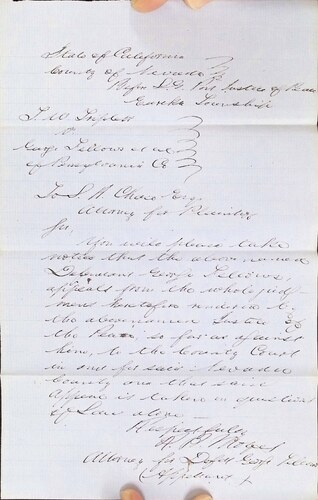 State of California
County of Nevada
Before S. G. Justice of Peace
Eureka Township
T. W.
vs
Geo. Fellows et al
of Pennsylvania Co
To S. A. Chase Esq.
Attorney for Plaintiff
Sir,
You will please take
notice that the above named
Defendant George Fellows,
appeals from the whole judg-
ment heretofore rendered by
the above named Justice of
the Peace, so far as against
him, to the County Court
in and for said Nevada
County and that said
appeal is taken on questions
of Law alone
Respectfully
Attorney for Deft Geo. Fellows
Appellant